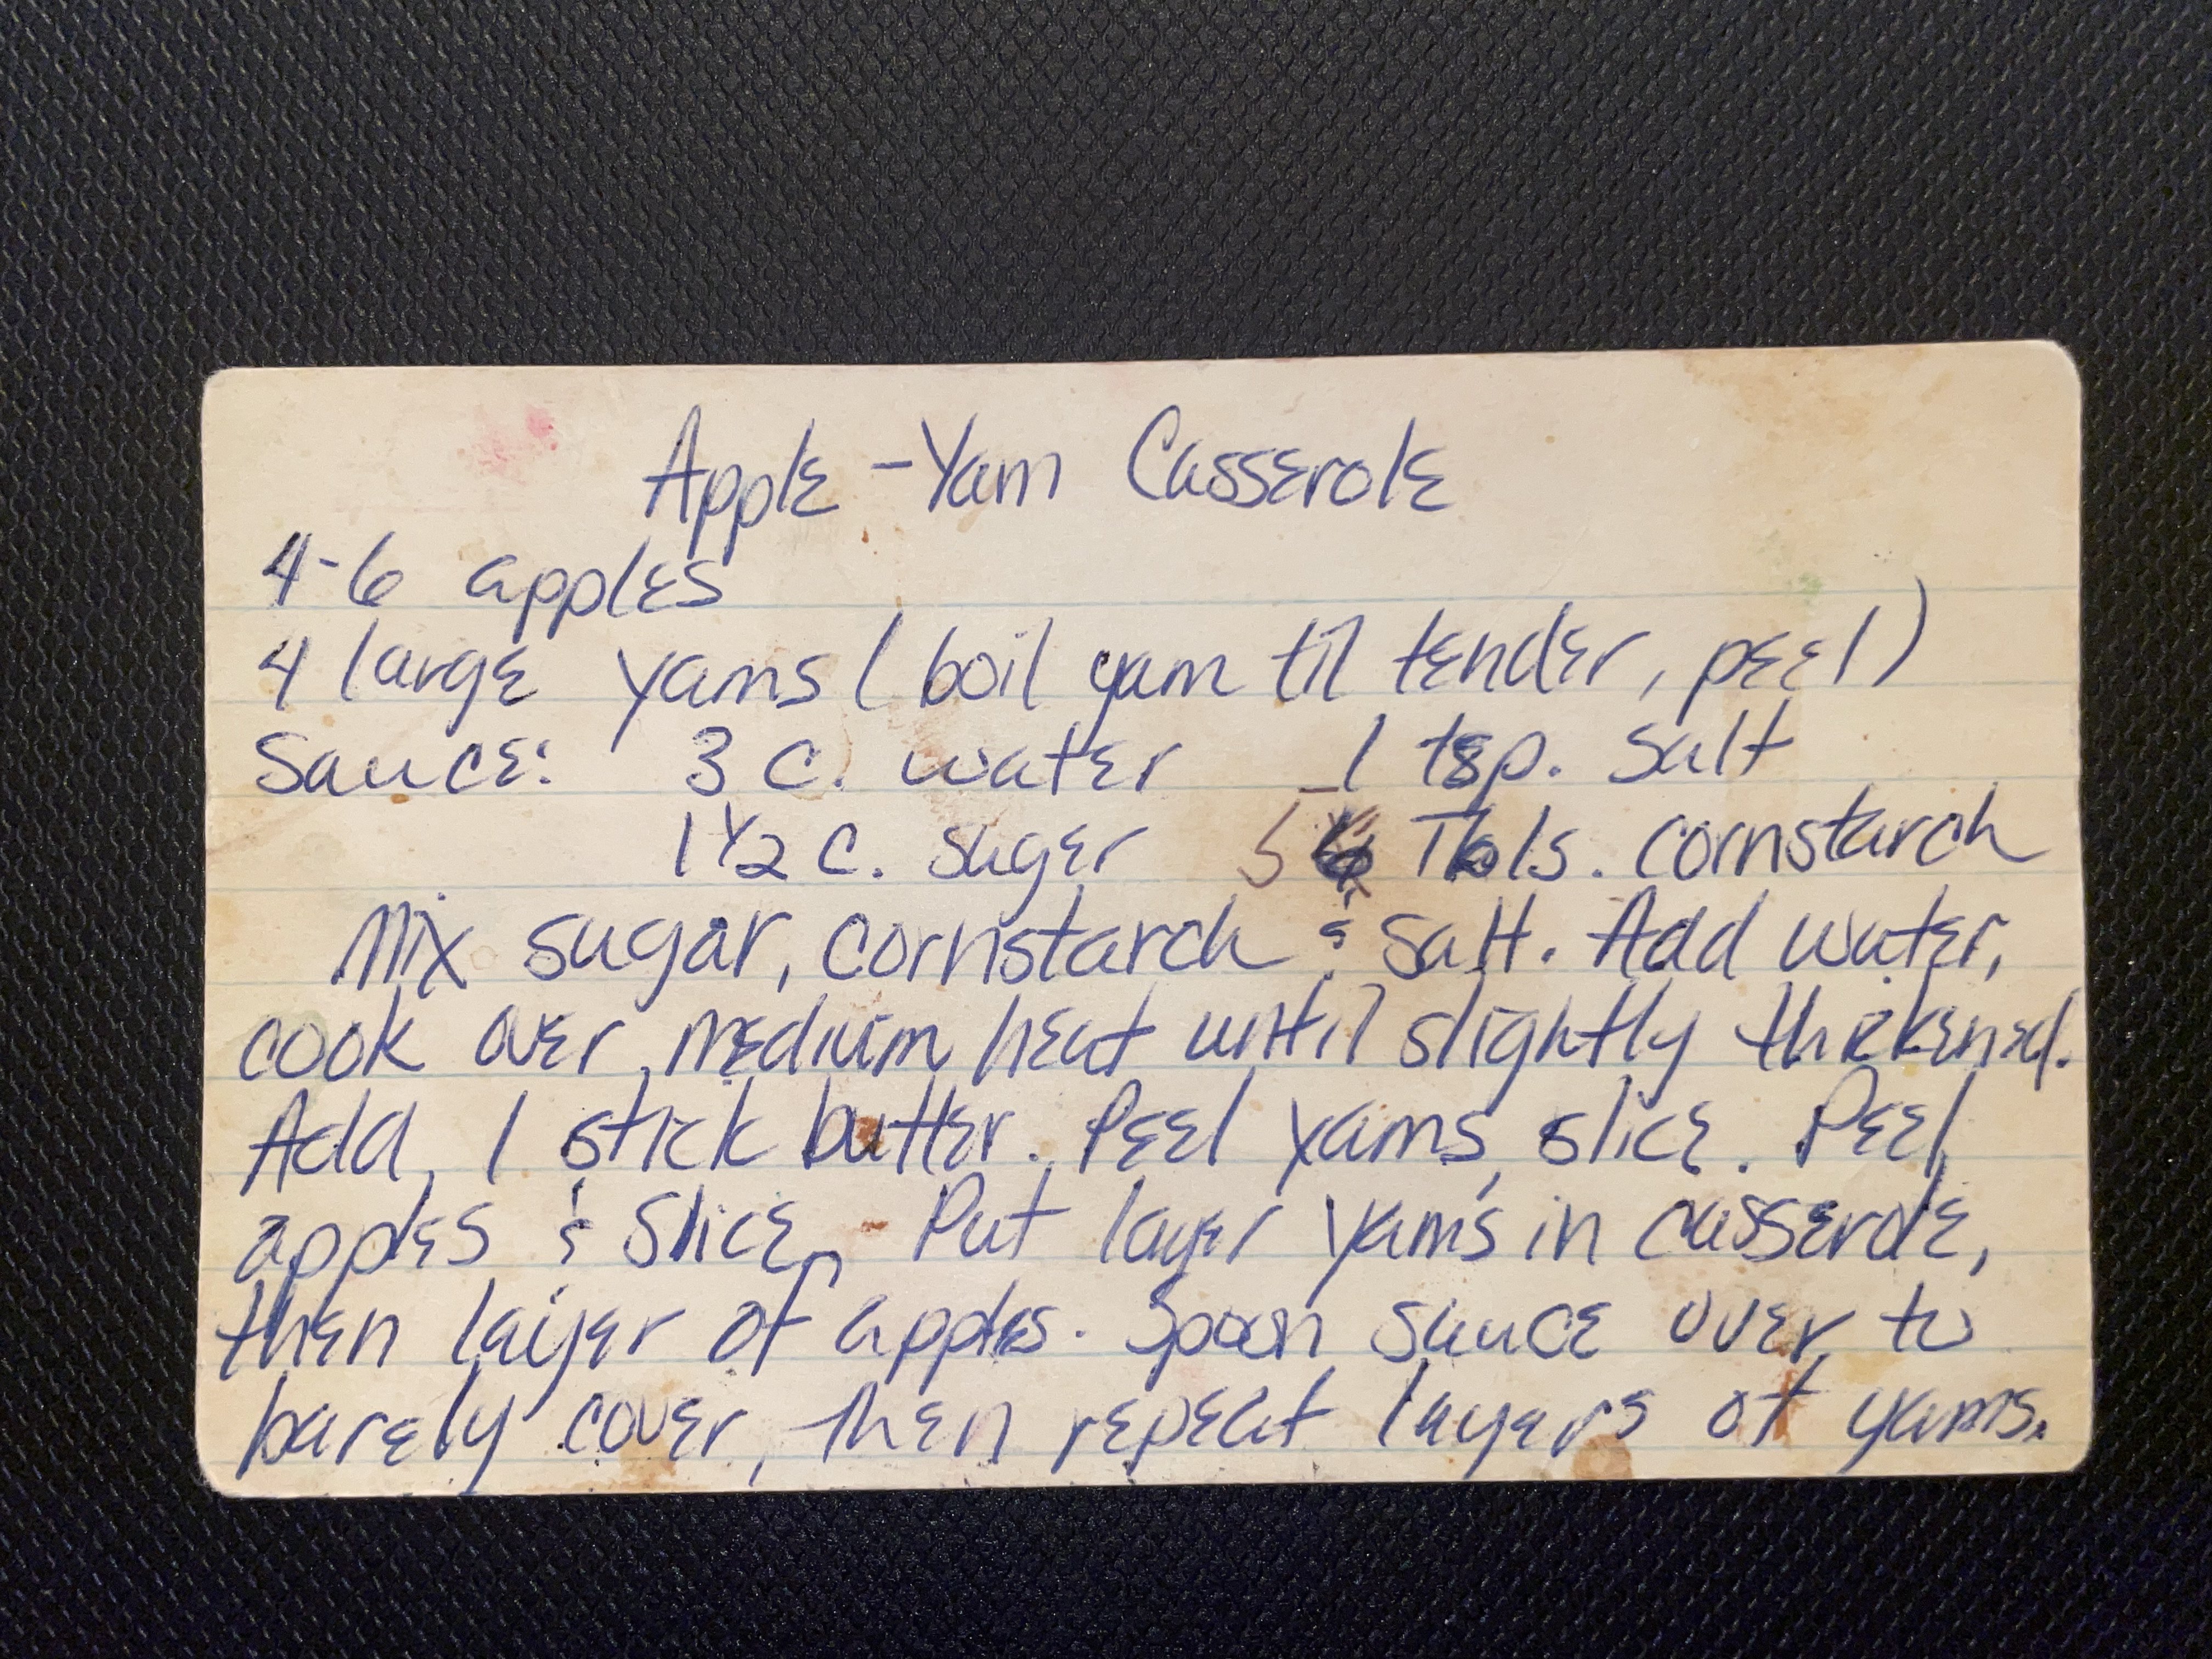 Apple - Yam Casserole
4-6 apples
4 large yams (boil yam til tender, peel)
Sauce: 3 c. water 1 tsp. salt
1 1/2 c. suger 5 Tbls. cornstarch
Mix sugar, cornstarch & salt. Add water,
cook over medium heat until slightly thickened.
Add 1 stick butter. Peel yams, slice. Peel
apples & slice. Put layer yams in casserole,
then layer of apples. Spoon sauce over to
barely cover, then repeat layers of yams.